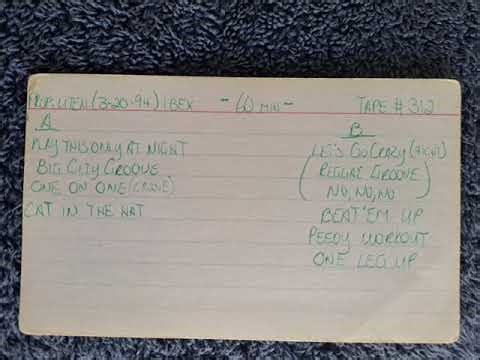 (3-20-94) IBEX - 60 MIN - TAPE # 312
A
PLAY THIS ONLY AT NIGHT
BIG CITY GROOVE
ONE ON ONE (GROOVE)
CAT IN THE HAT
B
LET'S GO CRAZY (RIGHT)
REGGAE GROOVE
NO, NO, NO
BEAT 'EM UP
PEEDY WORKOUT
ONE LEG UP